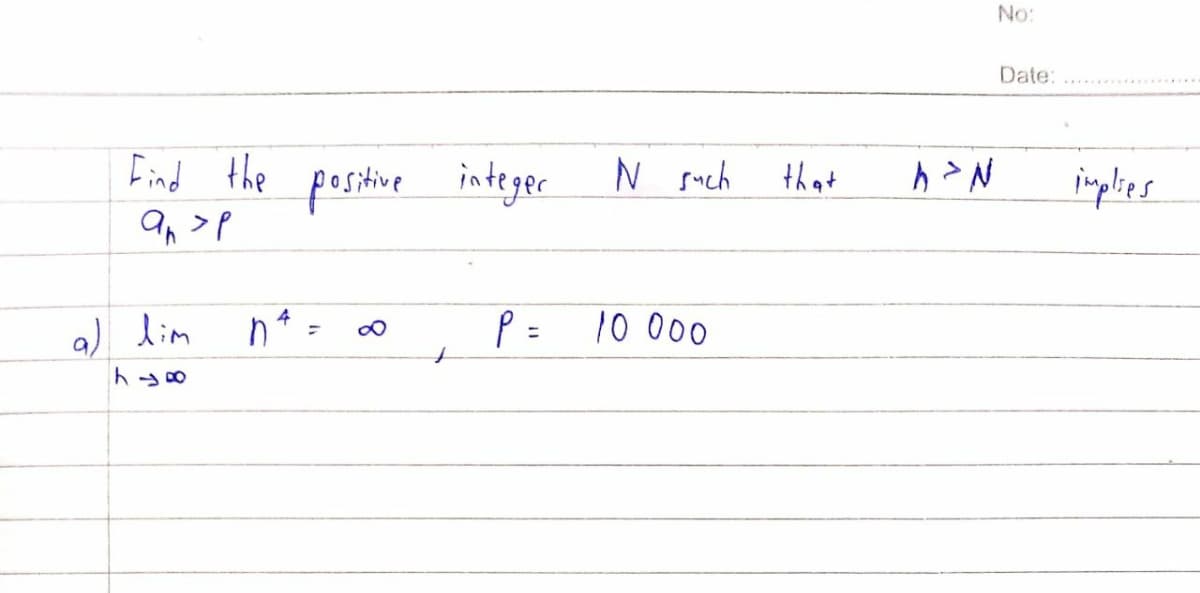 No:
Date: ..................
Find the positive integer N such that n > N implies
aₙ > P
a) lim n⁴ = ∞ , P = 10 000
n → ∞